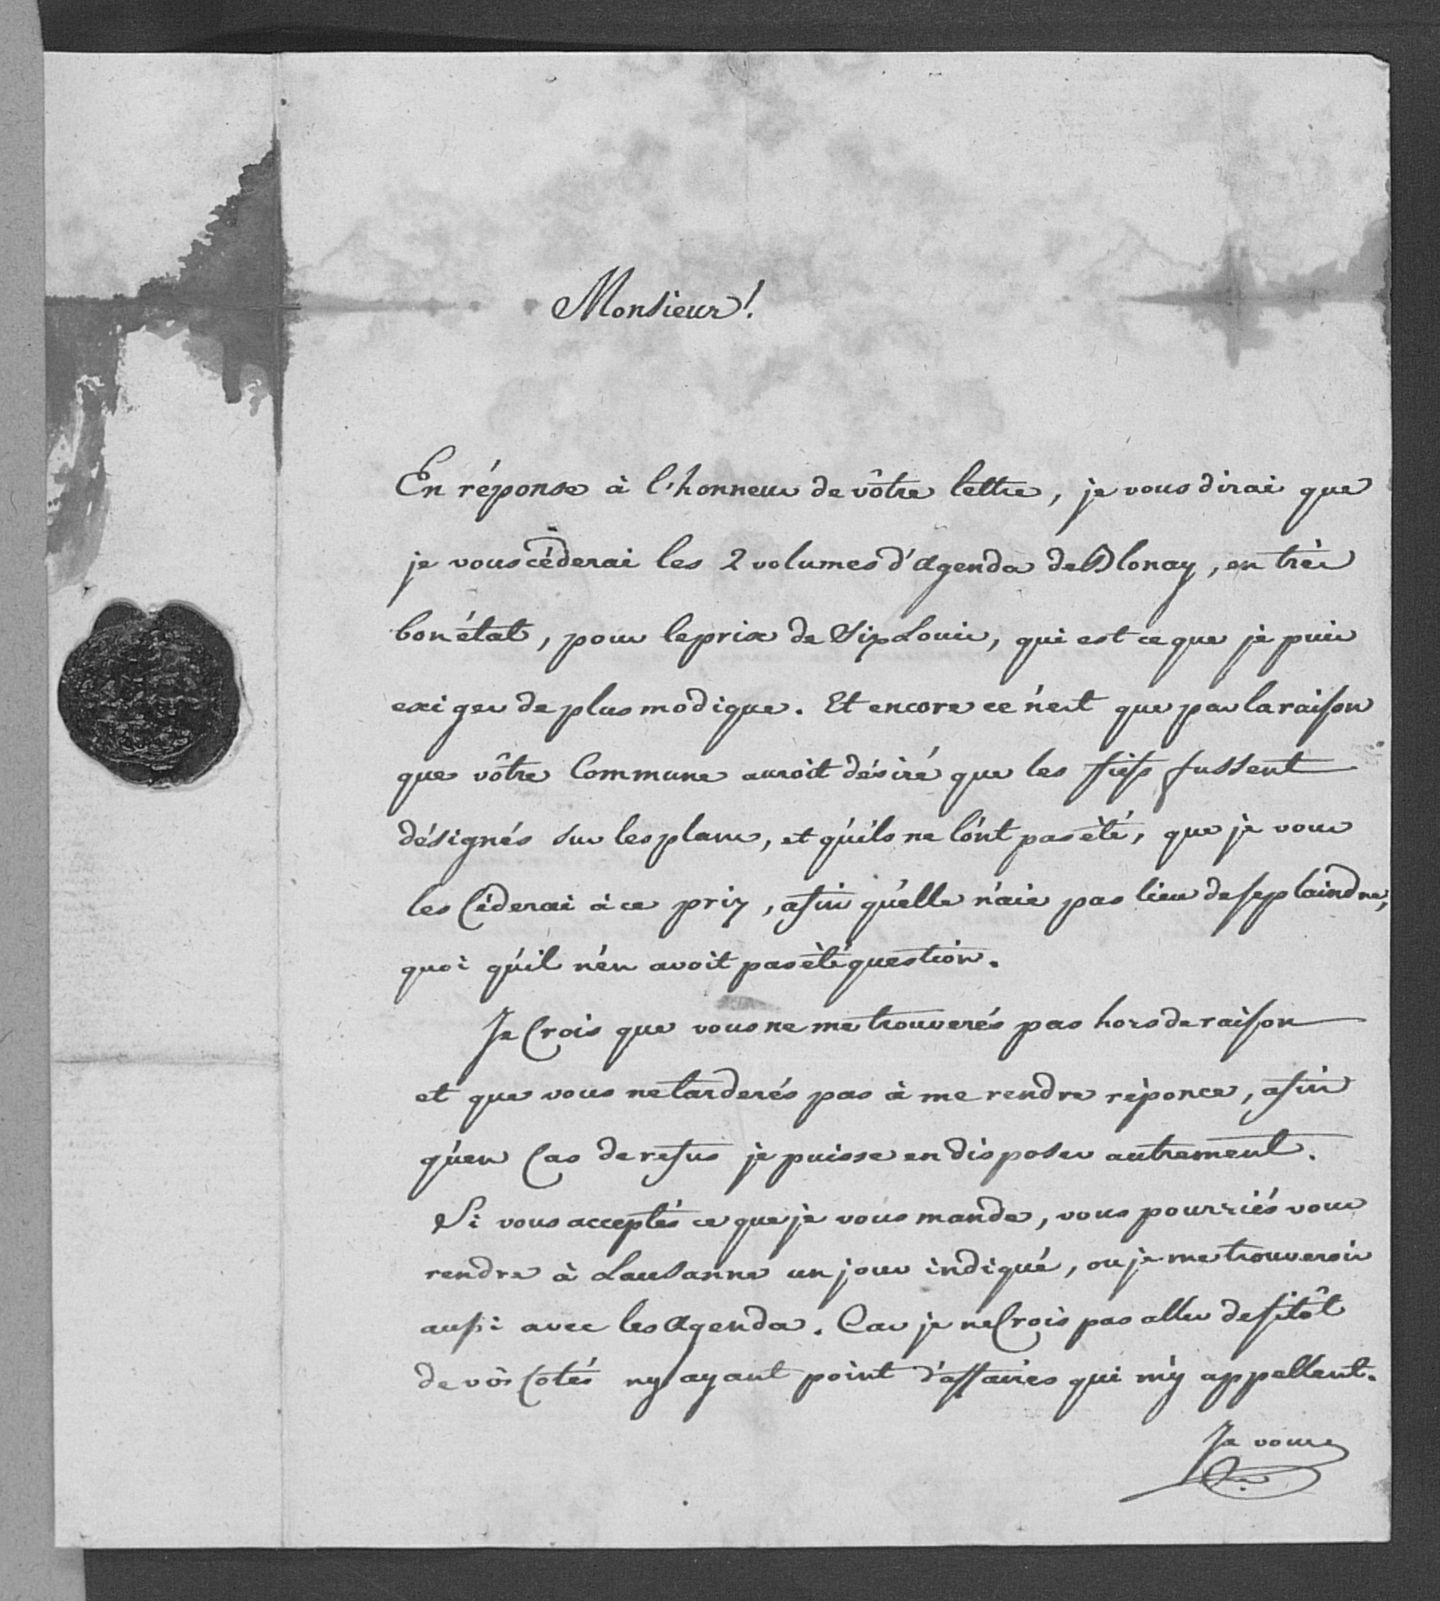 Monsieur!
En réponse à l'honneur de vôtre lettre, je vous dirai que
je vous céderai les 2 volumes d'Agenda de Blonay, en très
bon état, pour le prix de Six Louis, qui est ce que je puis
exiger de plus modique. Et encore ce n'est que par la raison
que vôtre Commune auroit désiré que les fiefs fussent
désignés sur les plans, et qu'ils ne l'ont pas été, que je vous
les Céderai à ce prix, afin qu'elle n'aie pas lieu de se plaindre,
quoi qu'il n'en avoit pas été question.
Je Crois que vous ne me trouverés pas hors de raison
et que vous ne tarderés pas à me rendre réponce, afin
qu'en Cas de refus je puisse en disposer autrement.
Si vous acceptés ce que je vous mande, vous pourriés vous
rendre à Lausanne un jour indiqué, ou je me trouverois
aussi avec les Agenda. Car je ne Crois pas aller de sitôt
de vôs Côtés n'y ayant point d'affaires qui m'y appellent.
Je vous